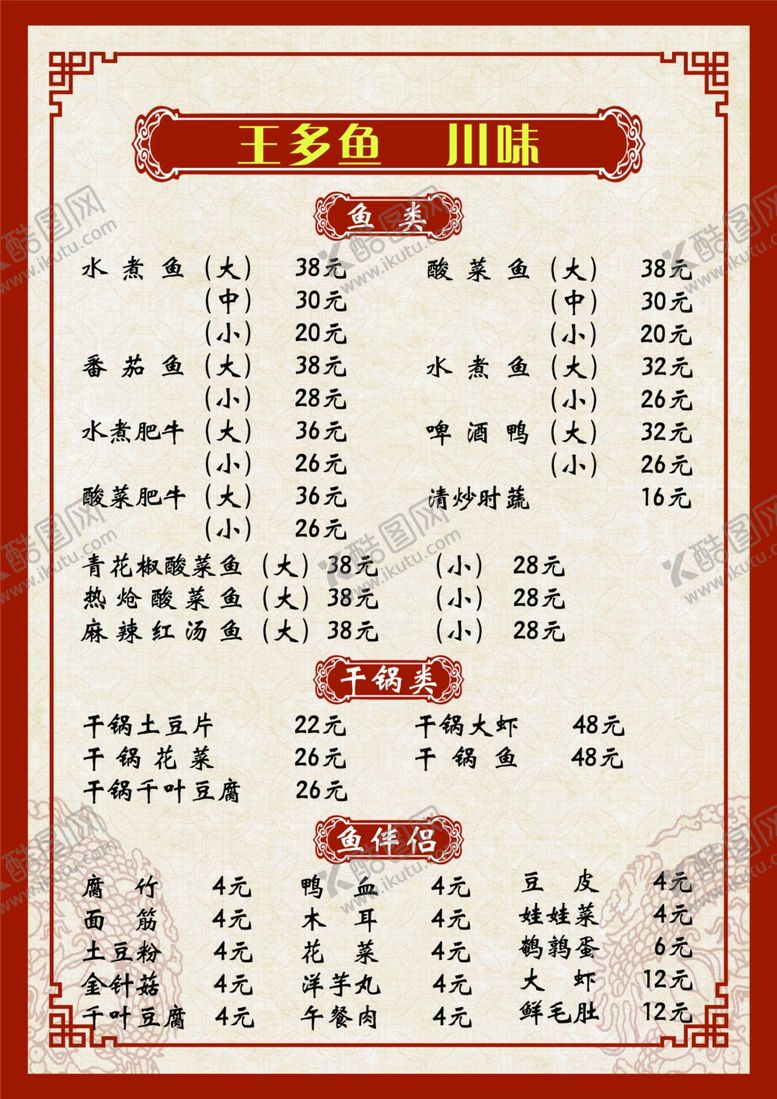 王多鱼 川味
鱼类
水煮鱼（大） 38元 酸菜鱼（大） 38元
（中） 30元 （中） 30元
（小） 20元 （小） 20元
番茄鱼（大） 38元 水煮鱼（大） 32元
（小） 28元 （小） 26元
水煮肥牛（大） 36元 啤酒鸭（大） 32元
（小） 26元 （小） 26元
酸菜肥牛（大） 36元 清炒时蔬 16元
（小） 26元
青花椒酸菜鱼（大）38元 （小） 28元
热炝酸菜鱼（大）38元 （小） 28元
麻辣红汤鱼（大）38元 （小） 28元
干锅类
干锅土豆片 22元 干锅大虾 48元
干锅花菜 26元 干锅鱼 48元
干锅千叶豆腐 26元
鱼伴侣
腐竹 4元 鸭血 4元 豆皮 4元
面筋 4元 木耳 4元 娃娃菜 4元
土豆粉 4元 花菜 4元 鹌鹑蛋 6元
金针菇 4元 洋芋丸 4元 大虾 12元
千叶豆腐 4元 午餐肉 4元 鲜毛肚 12元
酷图网
www.ikutu.com